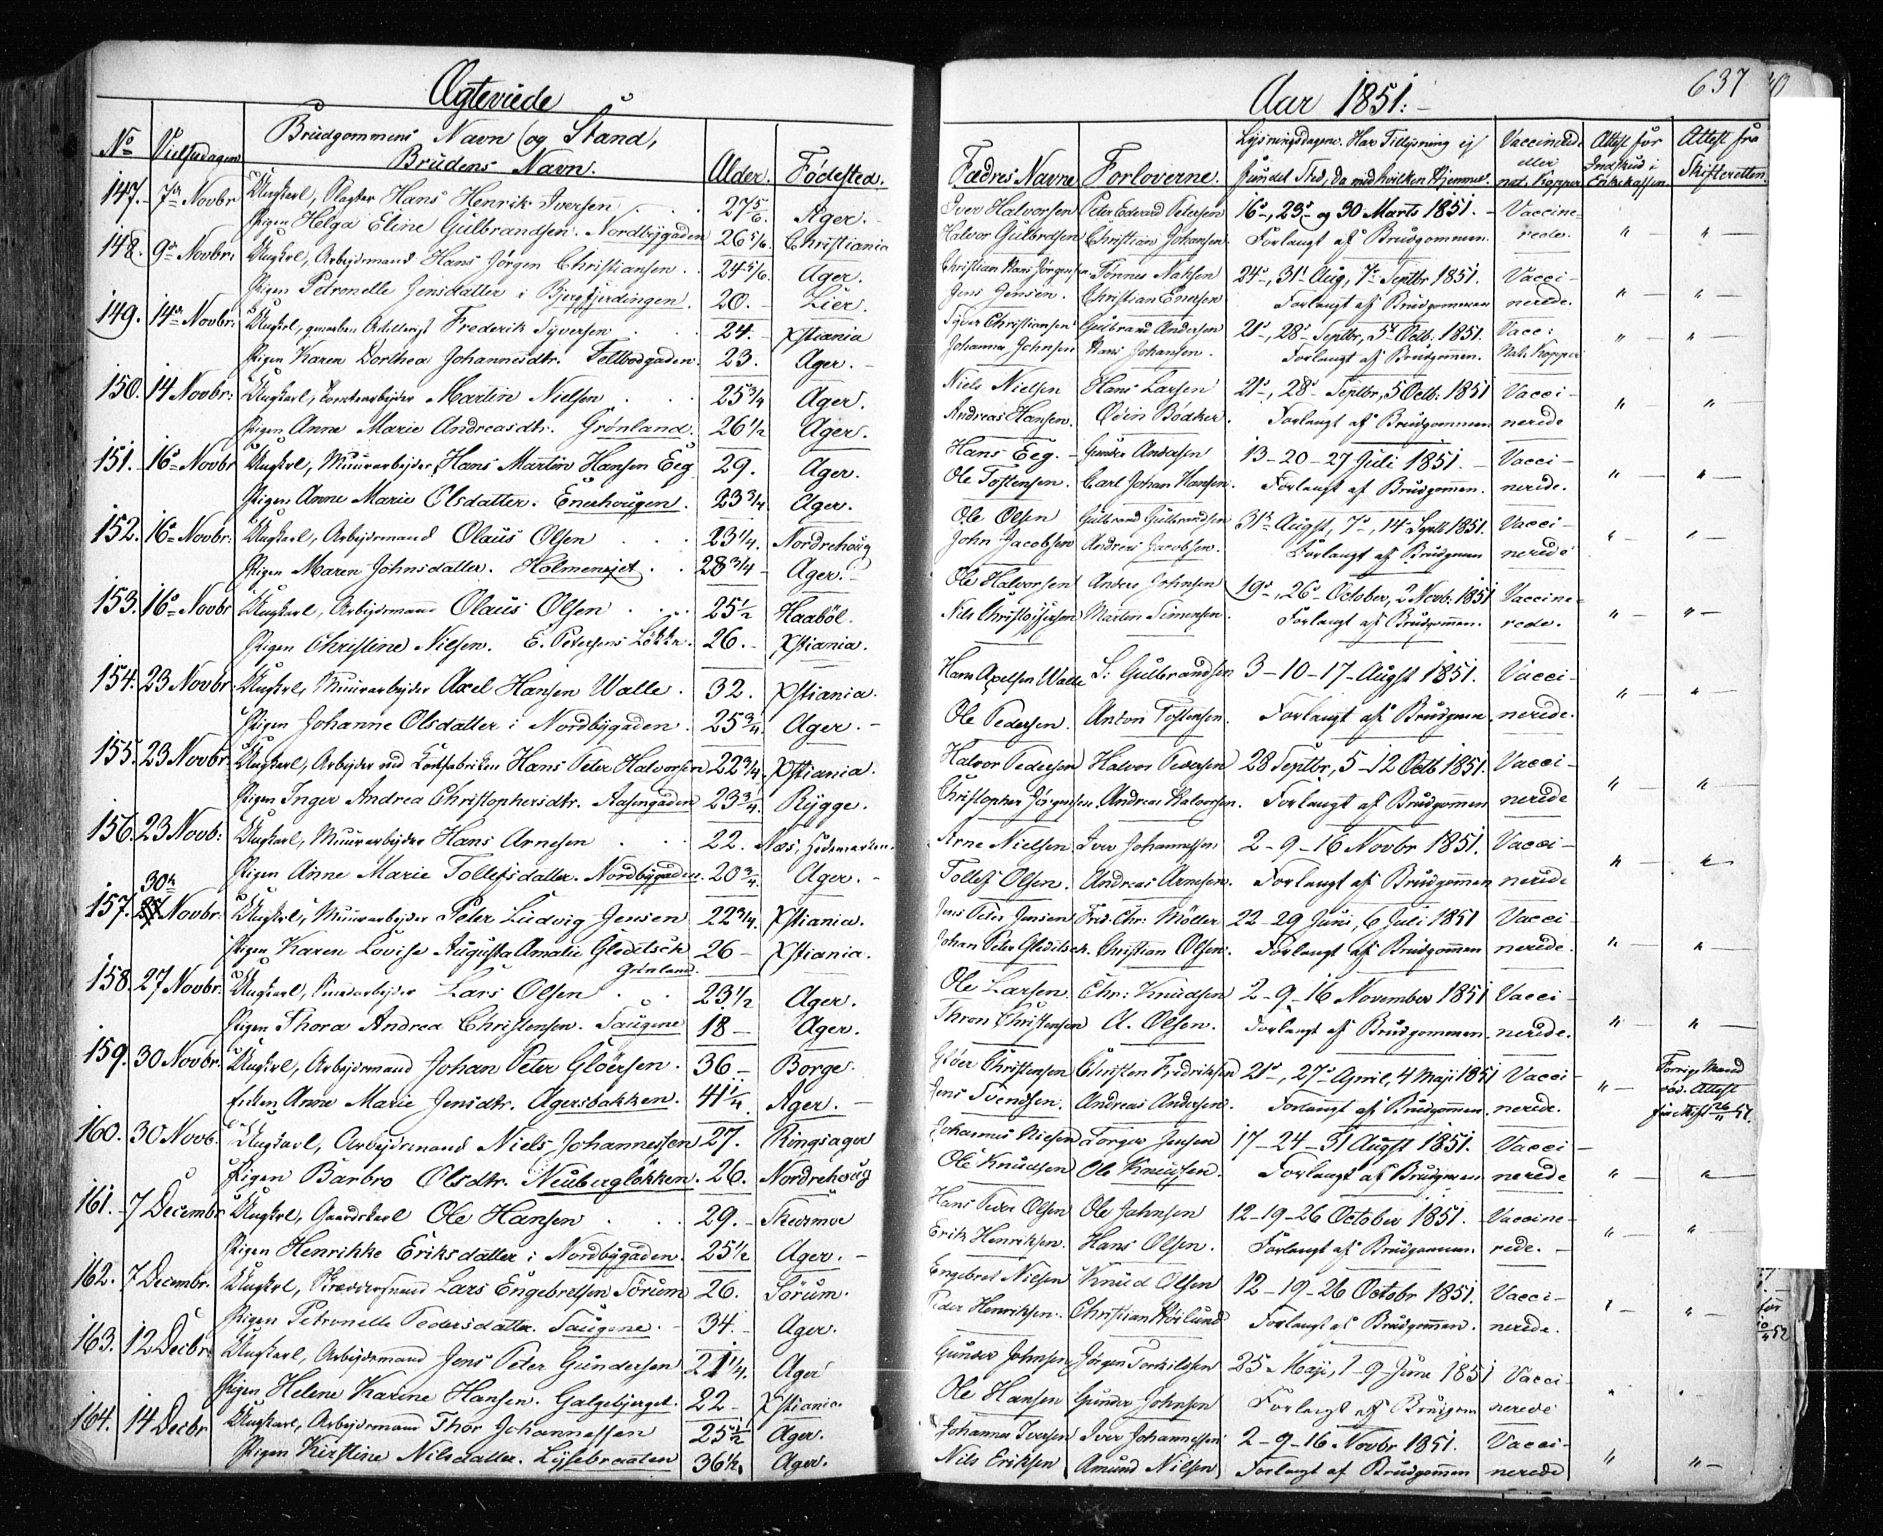 Ægteviede
Aar 1851.
637
No
Vielsesdagen
Brudgommens Navn og Stand,
Brudens Navn.
Alder.
Fødested.
Fædres Navne
Forloverne.
Lysningsdagene. Har Tillysning ej
fundet Sted, da med hvilken Hjemmel.
Vaccinerede
eller
nat. Kopper
Attest for
Indskud i
Enkekassen
Attest fra
Skifteretten.
147. 7de Novbr Ungkarl, Slagter Hans Henrik Iversen 27 5/6 Ager. Iver Halvorsen Peter Edvard Petersen 16de, 23de og 30 Marts 1851. Vaccine-
Pigen Helga Eline Gulbrandsen. Nordbygaden 26 5/6 Christiania Halvor Gulbrdsen Christian Johansen Forlangt af Brudgommen. rede. " — " —
148. 9de Novbr. Ungkrl, Arbejdsmand Hans Jørgen Christiansen 24 5/6 Ager. Christian Hans Jørgensen Tønnes Naksen 24de, 31te Aug, 7de Septbr 1851. Vacci-
Pigen Petronelle Jensdatter i Bjergfjerdingen. 20. Lier. Jens Jensen. Christian Enersen Forlangt af Brudgommen nerede. " — " —
149. 14de Novbr: Ungkrl, Frederik Syversen 24. Xstiania Syver Christiansen Gulbrand Andersen 21de, 28de Septbr, 5te Octb: 1851. Vacc:
Pigen Karen Dorthea Johannesdtr. Feltbodgaden 23. Ager. Johannes Johnsen Hans Johansen. Forlangt af Brudgommen. Nat. Kopper " — " —
150. 14 Novbr: Ungkarl, Tomtearbejder Martin Nielsen 25 3/4 Ager. Niels Nielsen Hans Larsen 21de, 28de Septbr, 5 Octb: 1851 Vacci-
Pigen Anne Marie Andreasdtr. Grønland. 26 1/2 Ager. Andreas Hansen. Odin Bødker. Forlangt af Brudgommen nerede " "
151. 16de Novbr Ungkarl, Muurarbejder, Hans Martin Hansen Eeg 29. Ager. Hans Eeg. Gunder Andersen 13-20-27 Juli 1851. Vacci-
Pigen Anne Marie Olsdatter. Enerhougen. 23 3/4 Ager. Ole Tostensen. Carl Johan Hansen. Forlangt af Brudgommen. nerede. " — " —
152. 16de Novbr. Ungkarl, Arbejdsmand Olaus Olsen 23 1/4. Nordrehoug Ole Olsen Gulbrand Gulbrandsen 31te Augst, 7de, 14de Septb 1851. Vacci-
Pigen Maren Johnsdatter. Holmensjet. 28 3/4 Ager. John Jacobsen Andreas Jacobsen. Forlangt af Brudgmen nerede " — " —
153. 16de Novbr Ungkarl, Arbejdsmand Olaus Olsen 25 1/2 Haaböl. Ole Halvorsen Anders Johnsen 19de, 26de October, 2 Novb: 1851 Vaccine-
Pigen Christine Nielsen. E. Petersens Løkke. 26. Xstiania. Nils Christophersen Martin Simensen. Forlangt af Brudgommen. rede. " — " —
154. 23 Novbr. Ungkrl, Muurarbejder Axel Hansen Walle. 32. Xstiania. Hans Axelsen Walle S. Gulbrandsen 3-10-17 Augst 1851. Vacci-
Pigen Johanne Olsdatter i Nordbygaden. 25 3/4 Ager. Ole Pedersen. Anton Tostensen. Forlangt af Brudgmen nerede. " — " —
155. 23 Novbr. Ungkarl, Arbejder ved Kortfabriken Hans Peter Halvorsen 22 3/4 Xstiania. Halvor Pedersen Halvor Pedersen 28 Septbr, 5-12 Octb 1851. Vacci-
Pigen Inger Andrea Christophersdtr. Aasengaden 23 3/4. Rygge. Christopher Jørgensen Andreas Halvorsen. Forlangt af Brudgommen nerede " "
156. 23 Novb: Ungkarl, Muurarbejder Hans Arnesen 22. Næs, Hedemarken. Arne Nielsen Iver Johannesen 2-9-16 Novbr 1851. Vacci-
Pigen Anne Marie Tollefsdatter. Nordbygaden. 20 3/4. Ager. Tollef Olsen. Andreas Arnesen. Forlangt af Brudgommen nerede " — "
157. 30te Novbr. Ungkarl, Muurarbejder Peter Ludvig Jensen 22 3/4 Xstiania. Jens Peter Jensen Frd. Chr: Møller 22-29 Juni, 6 Juli 1851 Vacci-
Pigen Karen Lovise Augusta Amalie Gleditsch Grønland. 26 Xstiania. Johan Peter Gleditsch. Christian Olsen. Forlangt af Brudgommen nerede. " — "
158. 27 Novbr. Ungkarl, Lars Olsen 23 1/2 Ager. Ole Larsen Chr: Knudsen 2-9-16 November 1851 Vacci-
Pigen Thora Andrea Christensen. Saugene 18 Ager. Thron Christensen A. Olsen. Forlangt af Brudgommen nerede. " — " —
159. 30 Novbr. Ungkrl, Arbejdsmand Johan Peter Gløersen. 36 Borge. Gløer Christensen Christen Fredriksen 21de, 27de April, 4 Maji 1851 Vacci- Forrige Mand
Enken Anne Marie Jensdtr. Agersbakken. 41 1/4 Ager. Jens Svendsen. Andreas Andersen. Forlangt af Brudgommen. nerede. " — død. Attest
fra Skift 26/11 51.
160. 30 Novb. Ungkarl, Arbejdsmand Niels Johannessen 27. Ringsager Johannes Niesen Torger Jensen 17-24-31 Augst 1851. Vacci-
Pigen Barbro Olsdtr. Neubergløkken. 26. Nordrehoug Ole Knudsen Ole Knudsen. Forlangt af Brudgmen nerede " — " —
161. 7 Decembr Ungkrl, Gaardskarl Ole Hansen 29. Skurmoe Hans Peder Olsen Ole Johnsen 12-19-26 October 1851. Vaccine-
Pigen Henrikke Eriksdatter i Nordbygaden. 25 1/2 Ager. Erik Henriksen. Hans Olsen. Forlangt af Brudgommen. rede. " — "
162. 7 Decembr. Ungkrl, Skreddersvend Lars Engebretsen Sörum 26. Sörum. Engebret Nielsen Knud Olsen 12-19-26 Octobr 1851. Vacci-
Pigen Petronelle Pedersdatter. Saugene. 34. Ager. Peder Henriksen. Christian Hørlund Forlangt af Brudgommen. nerede. " — " —
163. 12 Decbr. Ungkarl, Arbejdsmand Jens Peter Gundersen 21 1/4. Ager Gunder Johnsen Jørgen Torkildsen 25 Maji, 1-9 June 1851 Vacci-
Pigen Helene Karine Hansen. Galgebjerget. 22 Xstiania. Ole Hansen Gunder Johnsen Forlangt af Brudgom nerede " "
164. 14 Decbr Ungkarl, Arbejdsmand Thor Johannessen 25 1/2 Ager. Johannes Iversen Iver Johannessen 2-9-16 Novbr 1851. Vacci-
Pigen Kirstine Nilsdatter. Lysebraaten 36 1/2. Ager. Nils Eriksen Amund Nilsen Forlangt af Brudgommen nerede " " —